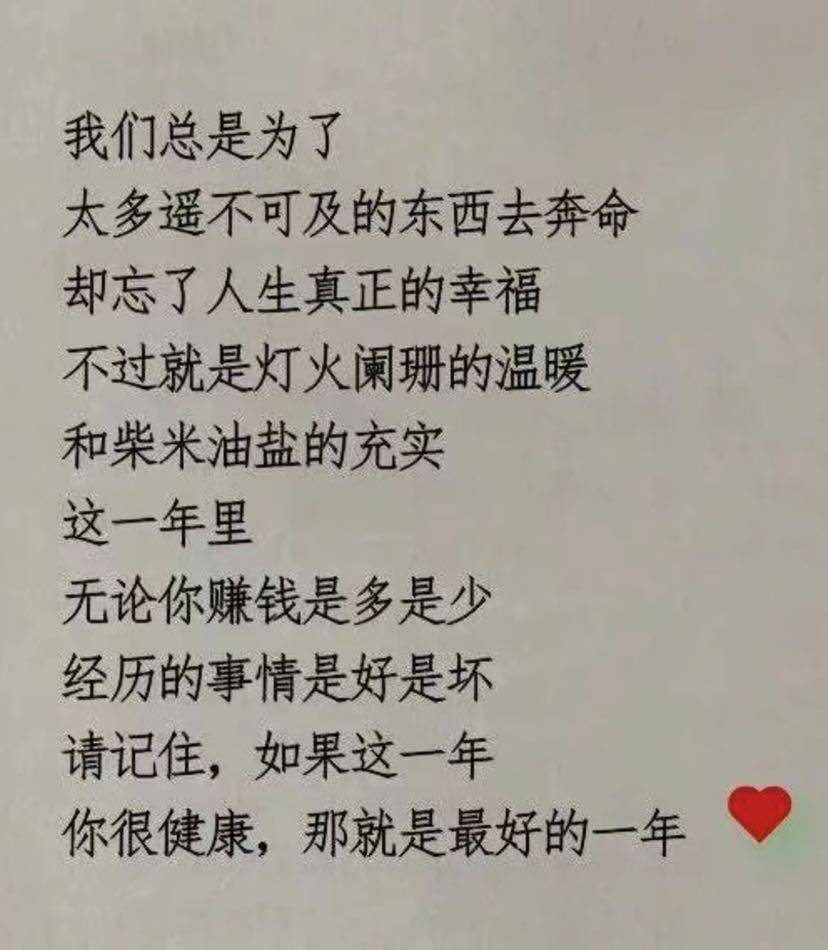 我们总是为了
太多遥不可及的东西去奔命
却忘了人生真正的幸福
不过就是灯火阑珊的温暖
和柴米油盐的充实
这一年里
无论你赚钱是多是少
经历的事情是好是坏
请记住，如果这一年
你很健康，那就是最好的一年